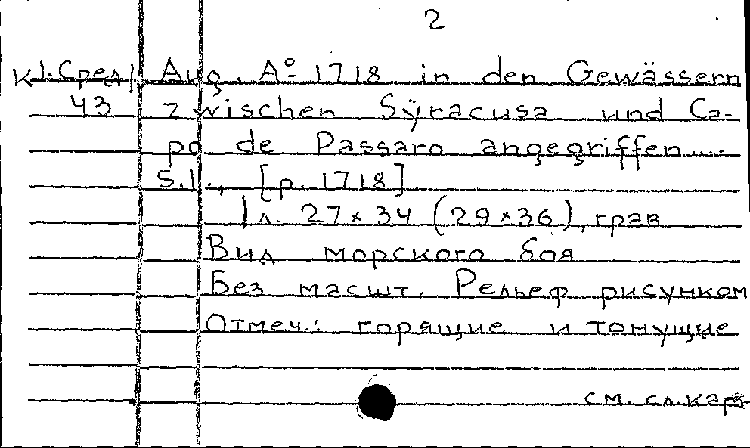 2
К 1. Сред/ Aug. Aº 1718 in den Gewässern
43 zwischen Sÿracusa und Ca-
po de Passaro angegriffen...
S.l., [p. 1718]
1 л. 27×34 (29×36), грав
Вид морского боя
Без масшт. Рельеф рисунком
Отмеч.: горящие и тонущие
см. сл. карт